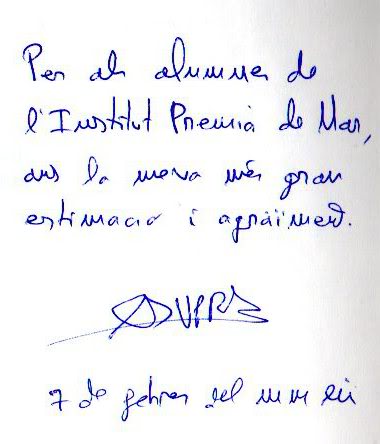 Per als alumnes de
l'Institut Premià de Mar,
amb la meva més gran
estimació i agraïment.
7 de febrer del